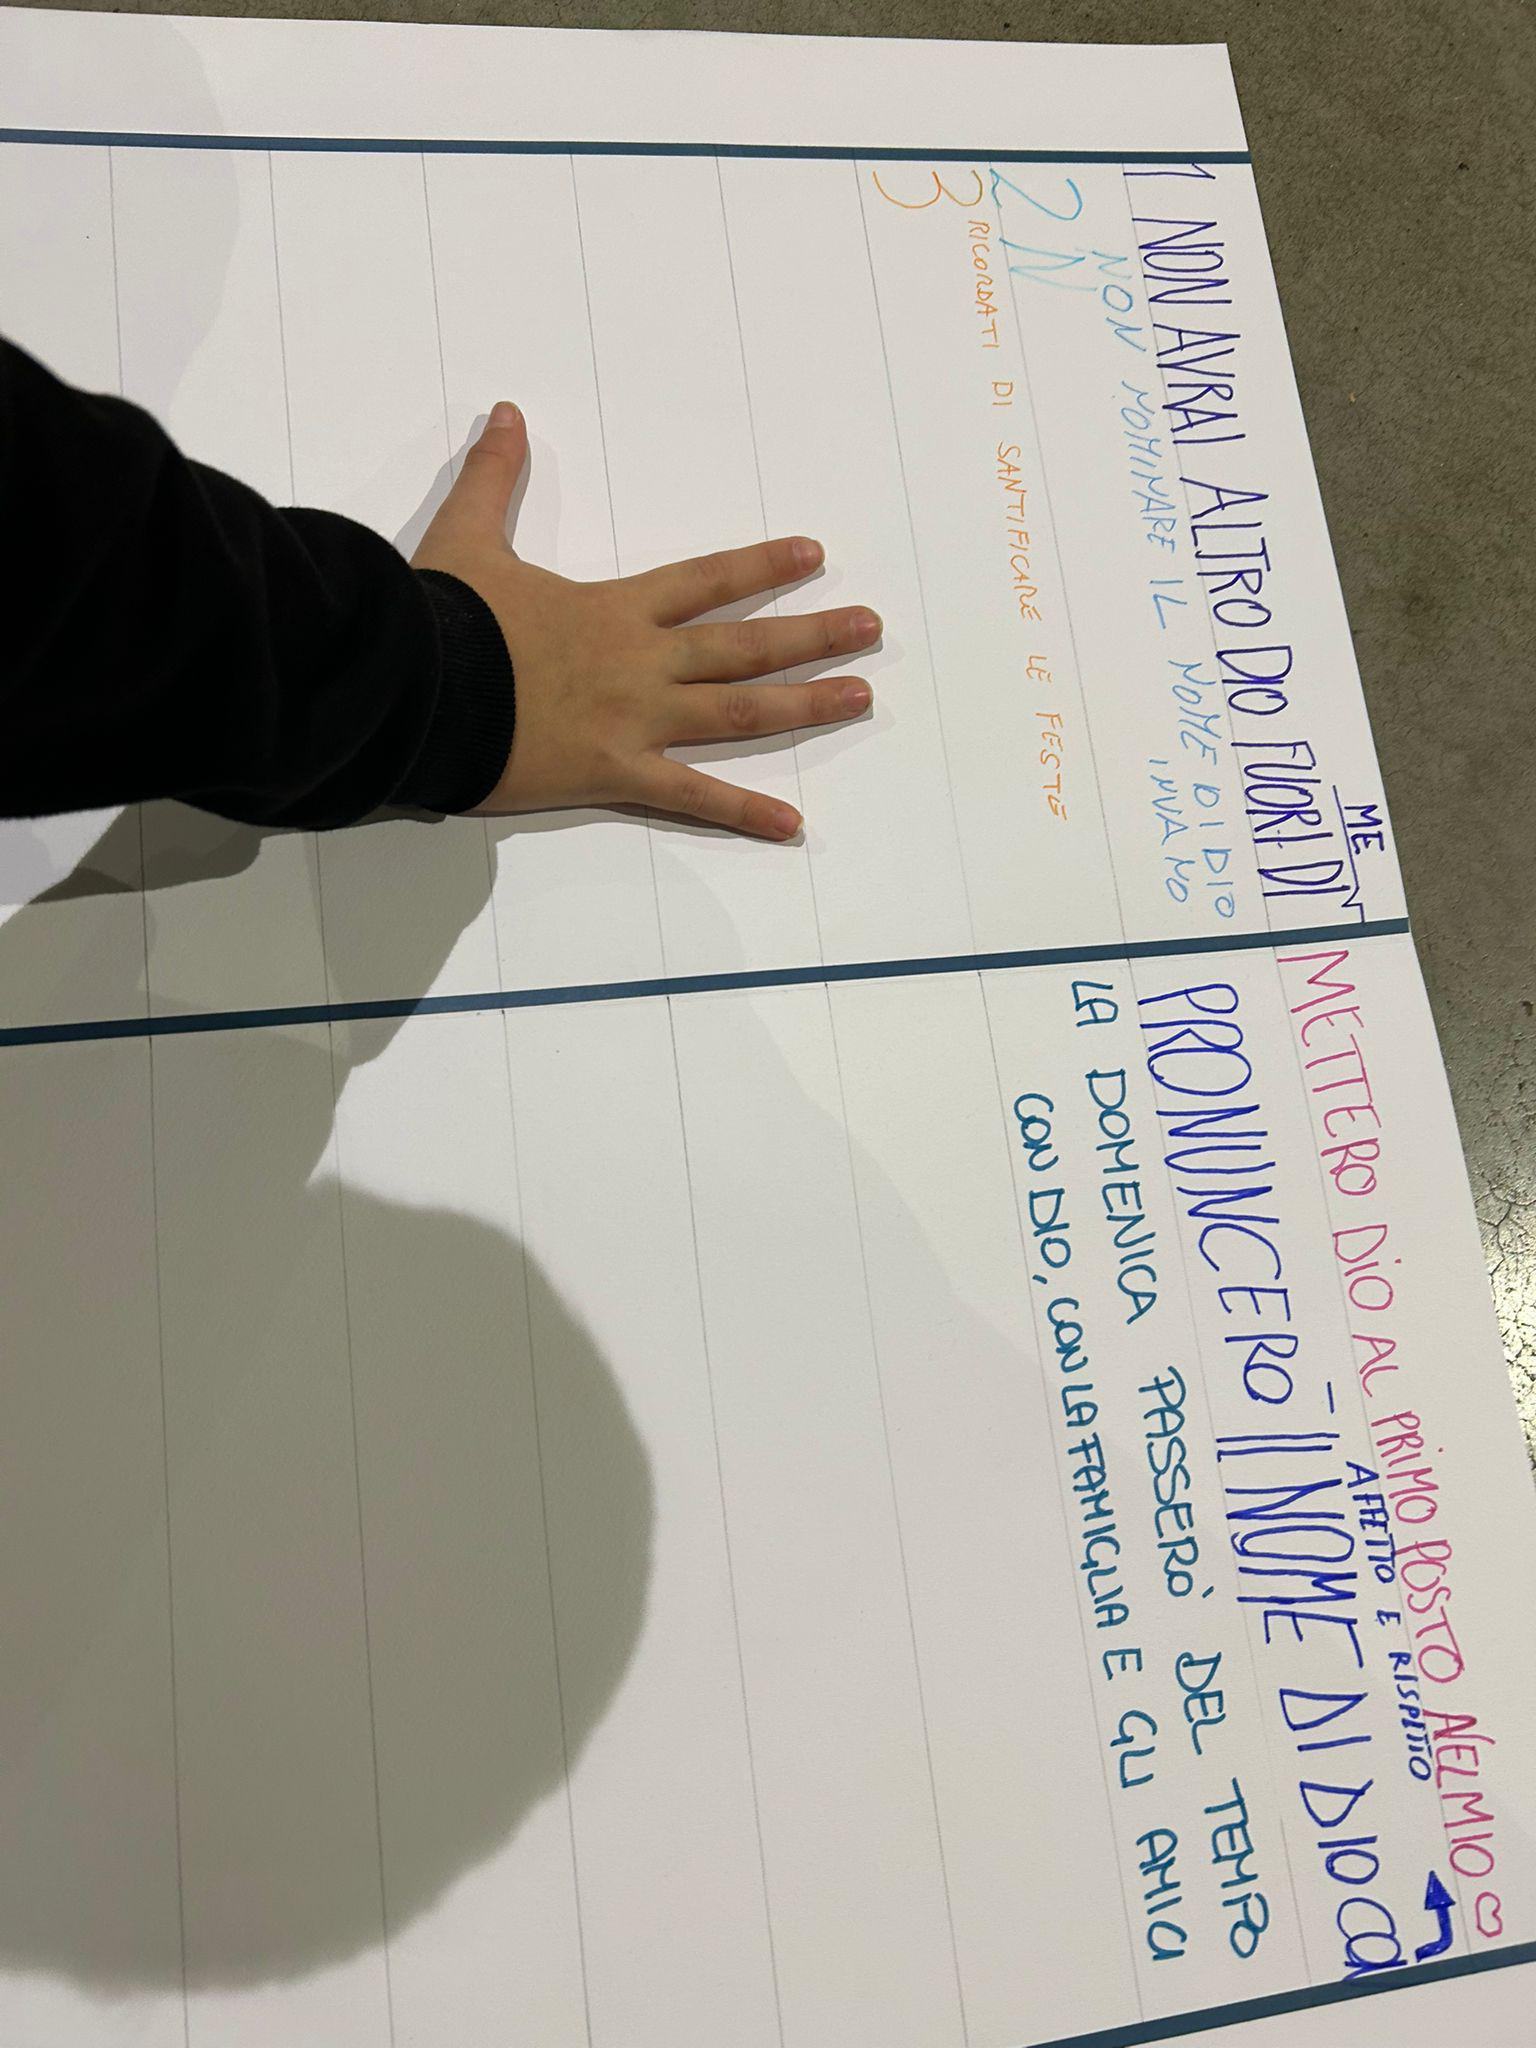 1 NON AVRAI ALTRO DIO FUORI DI
ME
2 NON NOMINARE IL NOME DI DIO
INVANO
2 N
3 RICORDATI DI SANTIFICARE LE FESTE
3
METTERO DIO AL PRIMO POSTO NEL MIO ♡
AFFETTO E RISPETTO
PRONUNCERO IL NOME DI DIO CO
LA DOMENICA PASSERÒ DEL TEMPO
CON DIO, CON LA FAMIGLIA E GLI AMICI